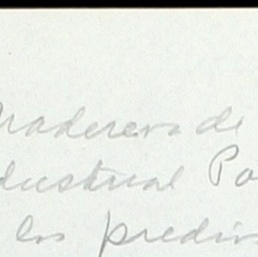 Maderera de
dustrial Pa
los predios